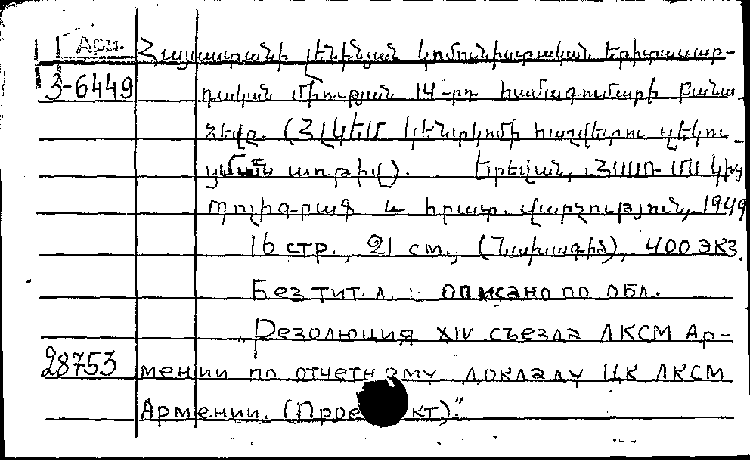 Арм. Հայաստանի լենինյան կոմունիստական երիտասար-
3-6449 դական միության 14-րդ համագումարի բանա
ձևը. (ՀԼԿԵՄ կենտկոմի հաշվետու զեկու
ցման առթիվ). Երևան, ՀՍՍՌ ՄՍ կից
պոլիգրաֆ և հրատ. վարչություն, 1949
16 стр., 21 см., (Նախագիծ), 400 экз.
Без тит. л. описано по обл.
„Резолюция XIV съезда ЛКСМ Ар-
28753 мении по отчетному докладу ЦК ЛКСМ
Армении. (Проект)."